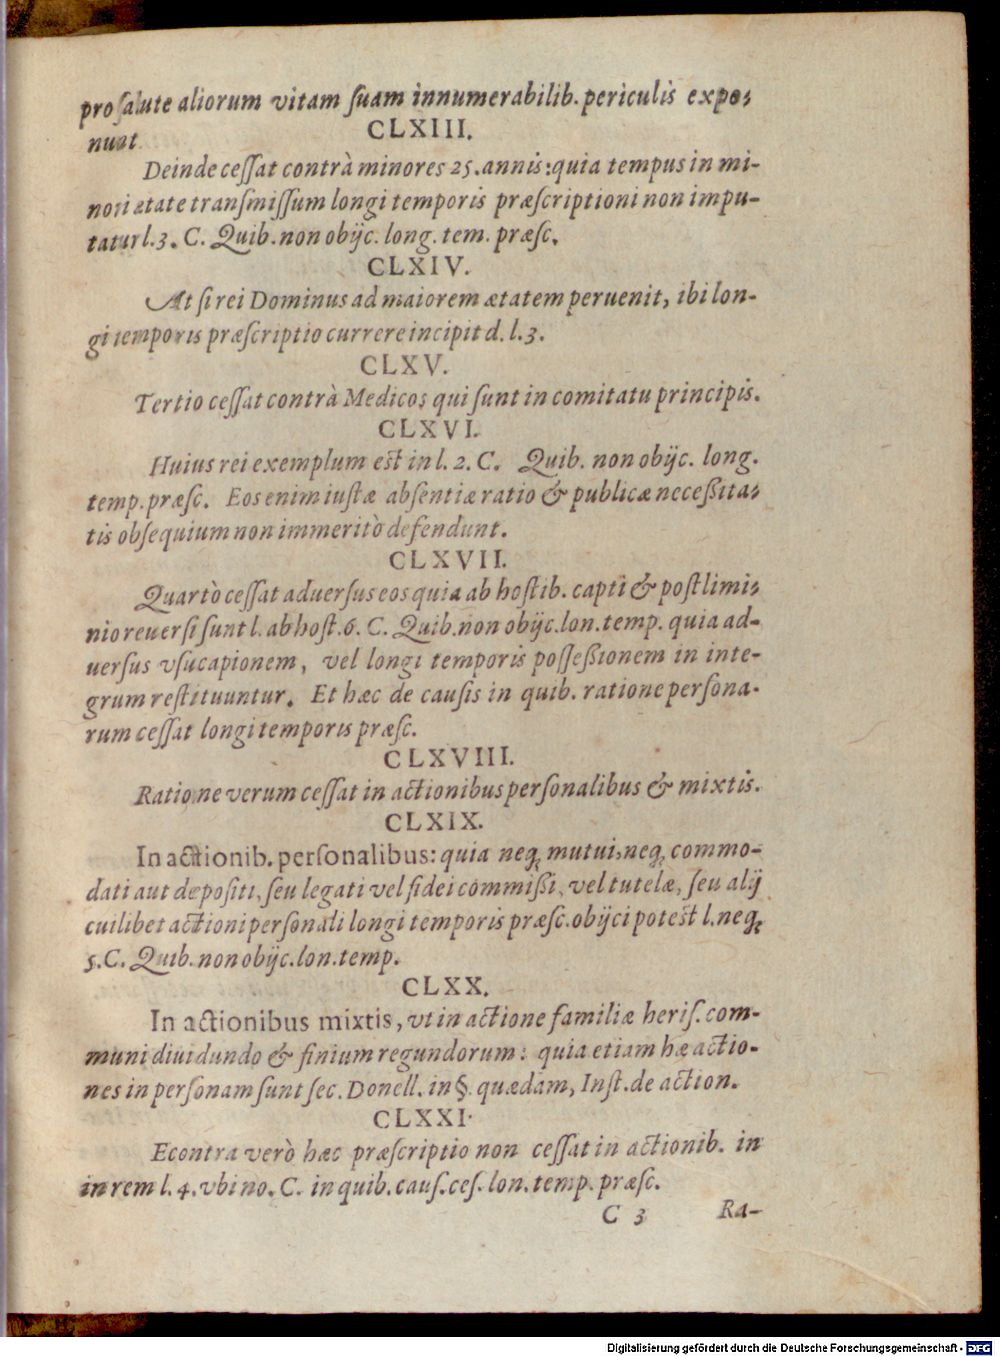 pro ſalute aliorum vitam ſuam innumerabilib. periculis expo-
nunt
CLXIII.
Deinde ceſſat contrà minores 25. annis: quia tempus in mi-
nori ætate tranſmiſſum longi temporis præſcriptioni non impu-
tatur l. 3. C. Quib. non obijc. long. tem. præſc.
CLXIV.
At ſi rei Dominus ad maiorem ætatem peruenit, ibi lon-
gi temporis præſcriptio currere incipit d. l. 3.
CLXV.
Tertio ceſſat contrà Medicos qui ſunt in comitatu principis.
CLXVI.
Huius rei exemplum est in l. 2. C. Quib. non obijc. long.
temp. præſc. Eos enim iuſtæ abſentiæ ratio & publicæ neceßita-
tis obſequium non immeritò defendunt.
CLXVII.
Quartò ceſſat aduerſus eos quia ab hoſtib. capti & poſtlimi-
nio reuerſi ſunt l. ab hoſt. 6. C. Quib. non obijc. lon. temp. quia ad-
uerſus vſucapionem, vel longi temporis poſſeßionem in inte-
grum reſtituuntur. Et hæc de cauſis in quib. ratione perſona-
rum ceſſat longi temporis præſc.
CLXVIII.
Ratione verum ceſſat in actionibus perſonalibus & mixtis.
CLXIX.
In actionib. perſonalibus: quia neq; mutui, neq; commo-
dati aut depoſiti, ſeu legati vel fidei commißi, vel tutelæ, ſeu alij
cuilibet actioni perſonali longi temporis præſc. obijci poteſt l. neq;
5. C. Quib. non obijc. lon. temp.
CLXX.
In actionibus mixtis, vt in actione familiæ heriſ. com-
muni diuidundo & finium regundorum: quia etiam hæ actio-
nes in perſonam ſunt ſec. Donell. in §. quædam, Inſt. de action.
CLXXI.
Econtra verò hæc præſcriptio non ceſſat in actionib. in
in rem l. 4. vbi no. C. in quib. cauſ. ceſ. lon. temp. præſc.
C 3 Ra-
Digitalisierung gefördert durch die Deutsche Forschungsgemeinschaft - DFG